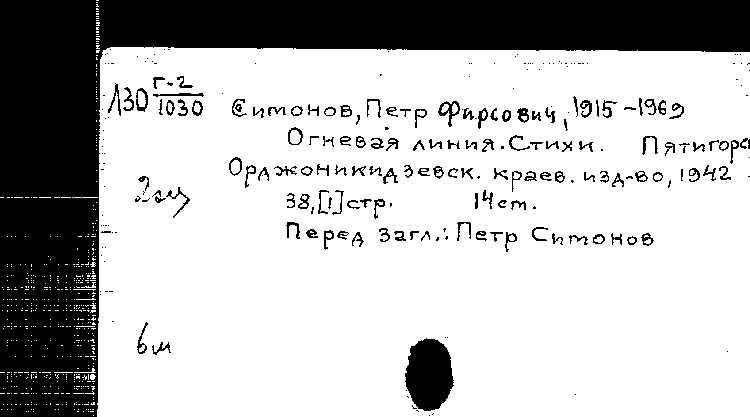 130 Г-2/1030 Симонов, Петр Фирсович, 1915-1969
Огневая линия. Стихи. Пятигорс
Орджоникидзевск. краев. изд-во, 1942
2 экз
38, [1] стр. 14 см.
Перед загл.: Петр Симонов
6 м